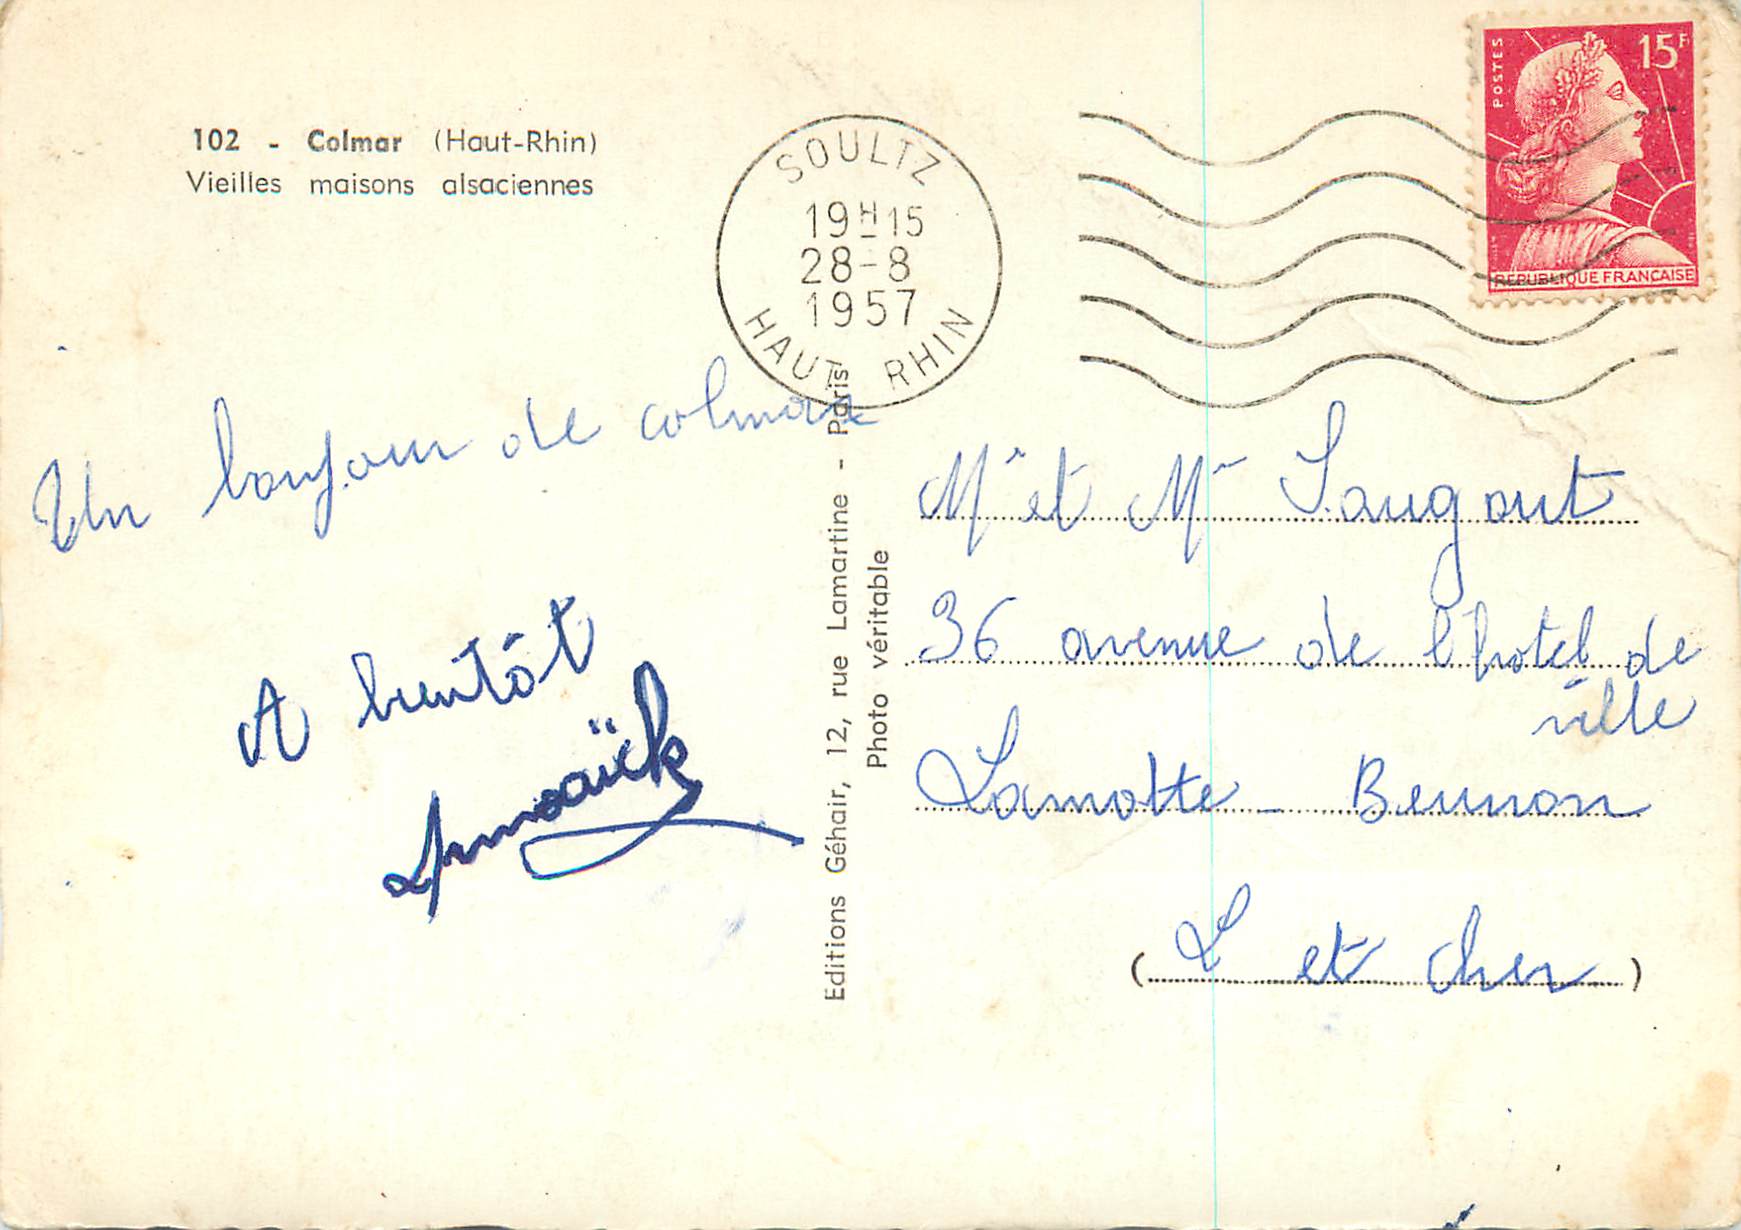 102 - Colmar (Haut-Rhin)
Vieilles maisons alsaciennes
SOULTZ
19H15
28-8
1957
HAUT RHIN
POSTES
15F
REPUBLIQUE FRANCAISE
Un bonjour de colmar
A bientôt
Editions Géhair, 12, rue Lamartine - Paris
Photo véritable
Mr et Mr
36 avenue de l'hotel de
ville
Lamotte - Beuvron
(L et cher)